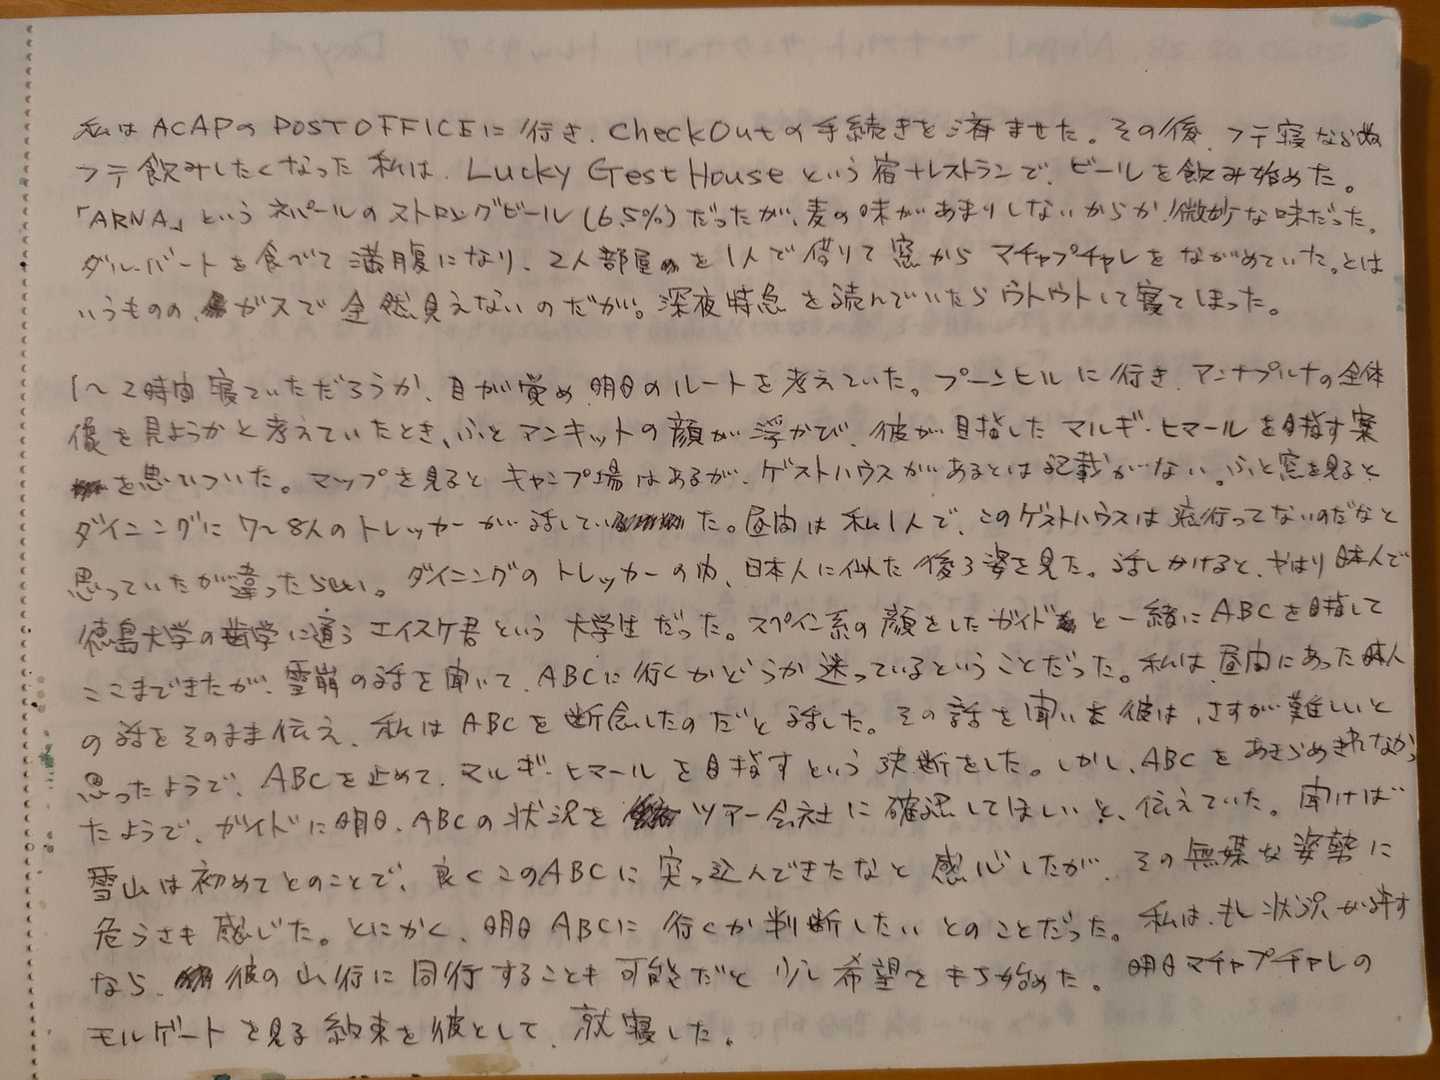 私はACAPのPOSTOFFICEに行き、CheckOutの手続きを済ませた。その後、フテ寝ならぬ
フテ飲みしたくなった私は、Lucky GestHouseという宿+レストランで、ビールを飲み始めた。
「ARNA」というネパールのストロングビール(6.5%)だったが、麦の味があまりしないからか、微妙な味だった。
ダルバートを食べて満腹になり、2人部屋を1人で借りて窓からマチャプチャレをながめていた。とは
いうものの、ガスで全然見えないのだが。深夜特急を読んでいたらウトウトして寝てしまった。
1〜2時間寝ていただろうか、目が覚め明日のルートを考えていた。プーンヒルに行き、アンナプルナの全体
像を見ようかと考えていたとき、ふとアンキットの顔が浮かび、彼が目指したマルディ・ヒマールを目指す案
を思いついた。マップを見るとキャンプ場はあるが、ゲストハウスがあるとは記載がない。ふと窓を見ると、
ダイニングに7〜8人のトレッカーが話していた。昼間は私1人で、このゲストハウスは流行ってないのだなと
思っていたが違ったらしい。ダイニングのトレッカーの内、日本人に似た後ろ姿を見た。話しかけると、やはり日本人で
徳島大学の歯学に通うエイスケ君という大学生だった。スペイン系の顔をしたガイドと一緒にABCを目指して
ここまできたが、雪崩の話を聞いて、ABCに行くかどうか迷っているということだった。私は、昼間にあった日本人
の話をそのまま伝え、私はABCを断念したのだと話した。その話を聞いた彼は、さすが難しいと
思ったようで、ABCを止めて、マルディ・ヒマールを目指すという決断をした。しかし、ABCをあきらめきれなかっ
たようで、ガイドに明日、ABCの状況をツアー会社に確認してほしいと、伝えていた。聞けば
雪山は初めてとのことで、良くこのABCに突っ込んできたなと感心したが、その無謀な姿勢に
危うさも感じた。とにかく、明日ABCに行くか判断したいとのことだった。私は、もし状況が許す
なら、彼の山行に同行することも可能だと少し希望をもち始めた。明日マチャプチャレの
モルゲートを見る約束を彼として、就寝した。